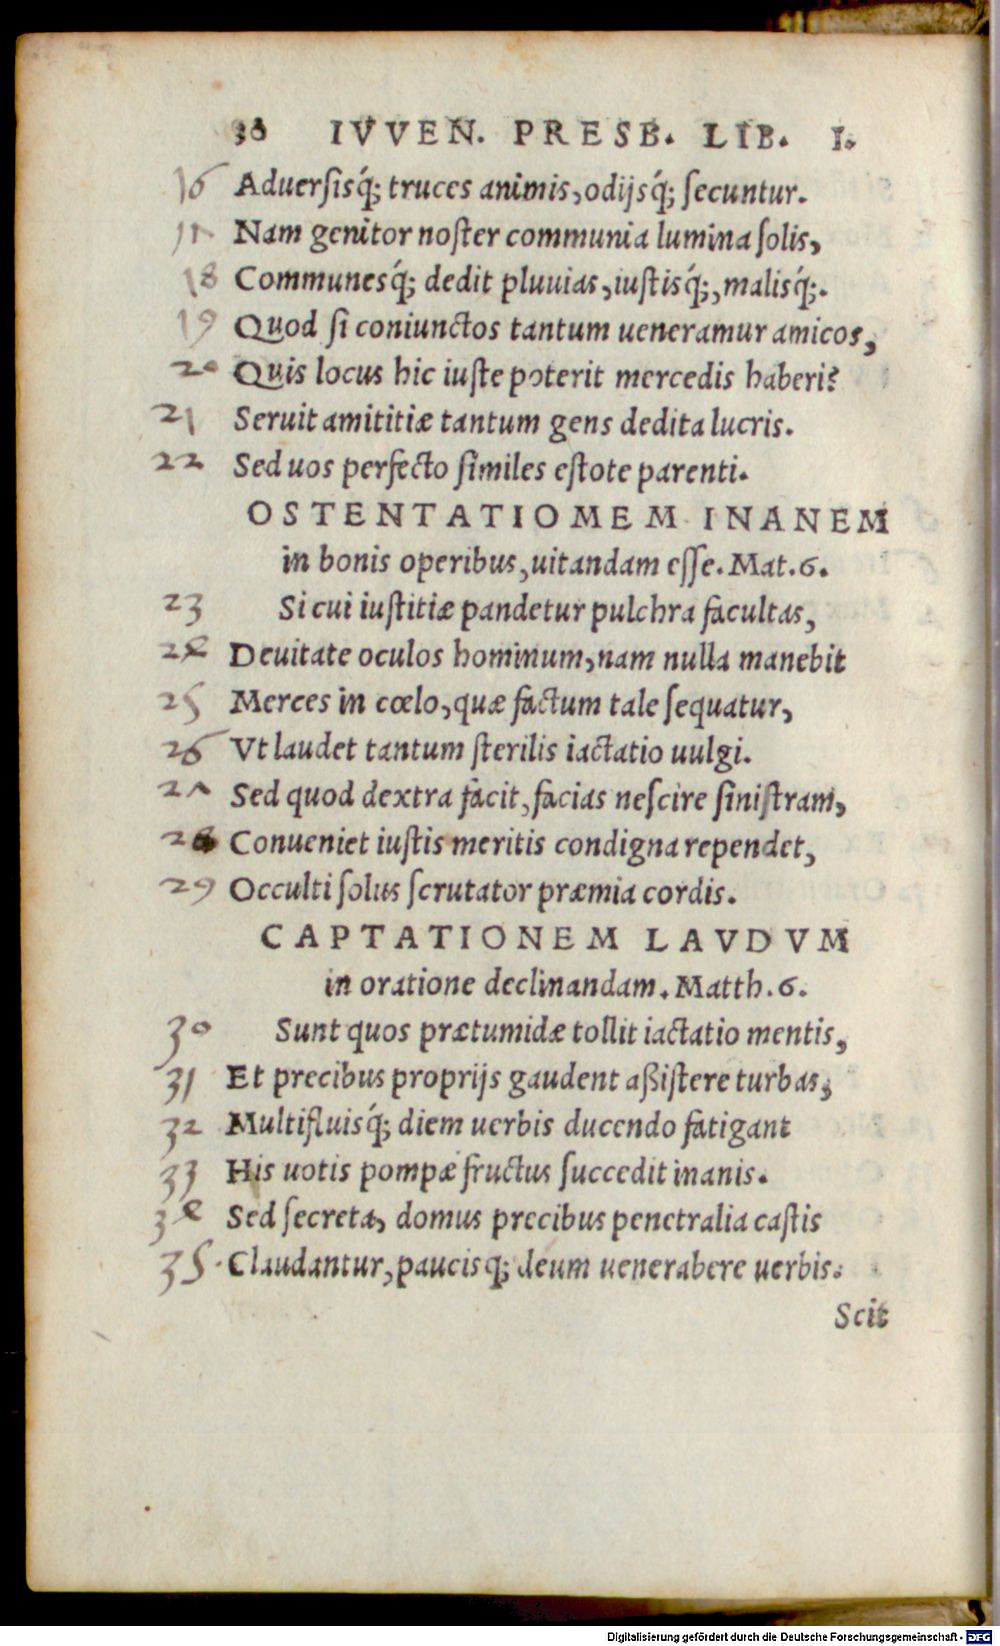 38 IVVEN. PRESB. LIB. I.
16 Aduersisq́; truces animis, odijsq́; secuntur.
17 Nam genitor noster communia lumina solis,
18 Communesq́; dedit pluuias, iustisq́;, malisq́;.
19 Quod si coniunctos tantum ueneramur amicos,
20 Quis locus hic iuste poterit mercedis haberi?
21 Seruit amititiæ tantum gens dedita lucris.
22 Sed uos perfecto similes estote parenti.
OSTENTATIOMEM INANEM
in bonis operibus, uitandam esse. Mat. 6.
23 Si cui iustitiæ pandetur pulchra facultas,
24 Deuitate oculos hominum, nam nulla manebit
25 Merces in cœlo, quæ factum tale sequatur,
26 Vt laudet tantum sterilis iactatio uulgi.
27 Sed quod dextra facit, facias nescire sinistram,
28 Conueniet iustis meritis condigna rependet,
29 Occulti solus scrutator præmia cordis.
CAPTATIONEM LAVDVM
in oratione declinandam. Matth. 6.
30 Sunt quos prætumidæ tollit iactatio mentis,
31 Et precibus proprijs gaudent aßistere turbas,
32 Multifluisq́; diem uerbis ducendo fatigant
33 His uotis pompæ fructus succedit inanis.
34 Sed secreta, domus precibus penetralia castis
35 Claudantur, paucisq; deum uenerabere uerbis.
Scit
Digitalisierung gefördert durch die Deutsche Forschungsgemeinschaft - DFG